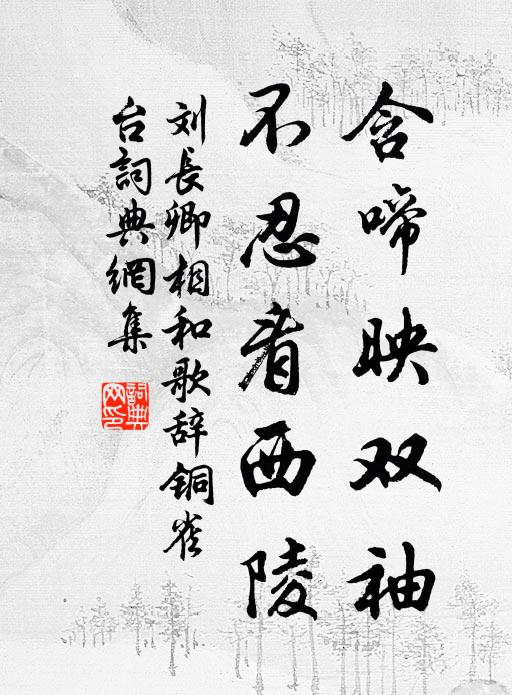 含啼映双袖
不忍看西陵
刘長卿相和歌辞铜雀
台詞典網集
詞典
网印